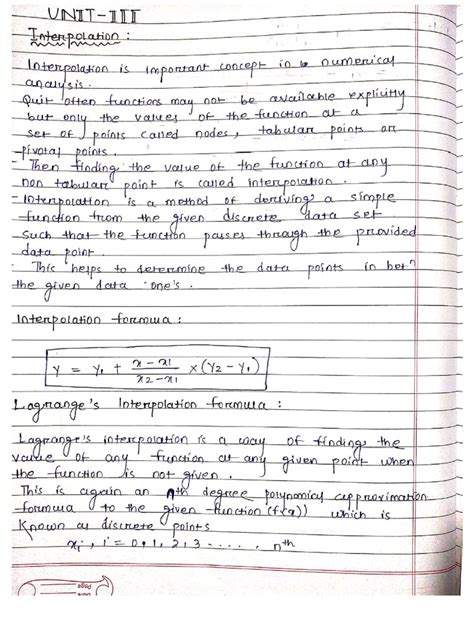 UNIT-III
Interpolation :
Interpolation is important concept in numerical
analysis.
Quit often functions may not be available explicitly
but only the values of the function at a
set of points called nodes, tabular points or
pivotal points.
Then finding the value of the function at any
non tabular point is called interpolation.
- Interpolation is a method of deriving a simple
function from the given discrete data set
such that the function passes through the provided
data point.
- This helps to determine the data points in betn
the given data one's.
Interpolation formula :
y = y1 + (x - x1)/(x2 - x1) × (y2 - y1)
Lagrange's Interpolation formula :
Lagrange's interpolation is a way of finding the
value of any function at any given point when
the function is not given.
This is again an nth degree polynomial approximation
formula to the given function (f(x)) which is
known as discrete points
xi, i = 0, 1, 2, 3 ..... nth
Page